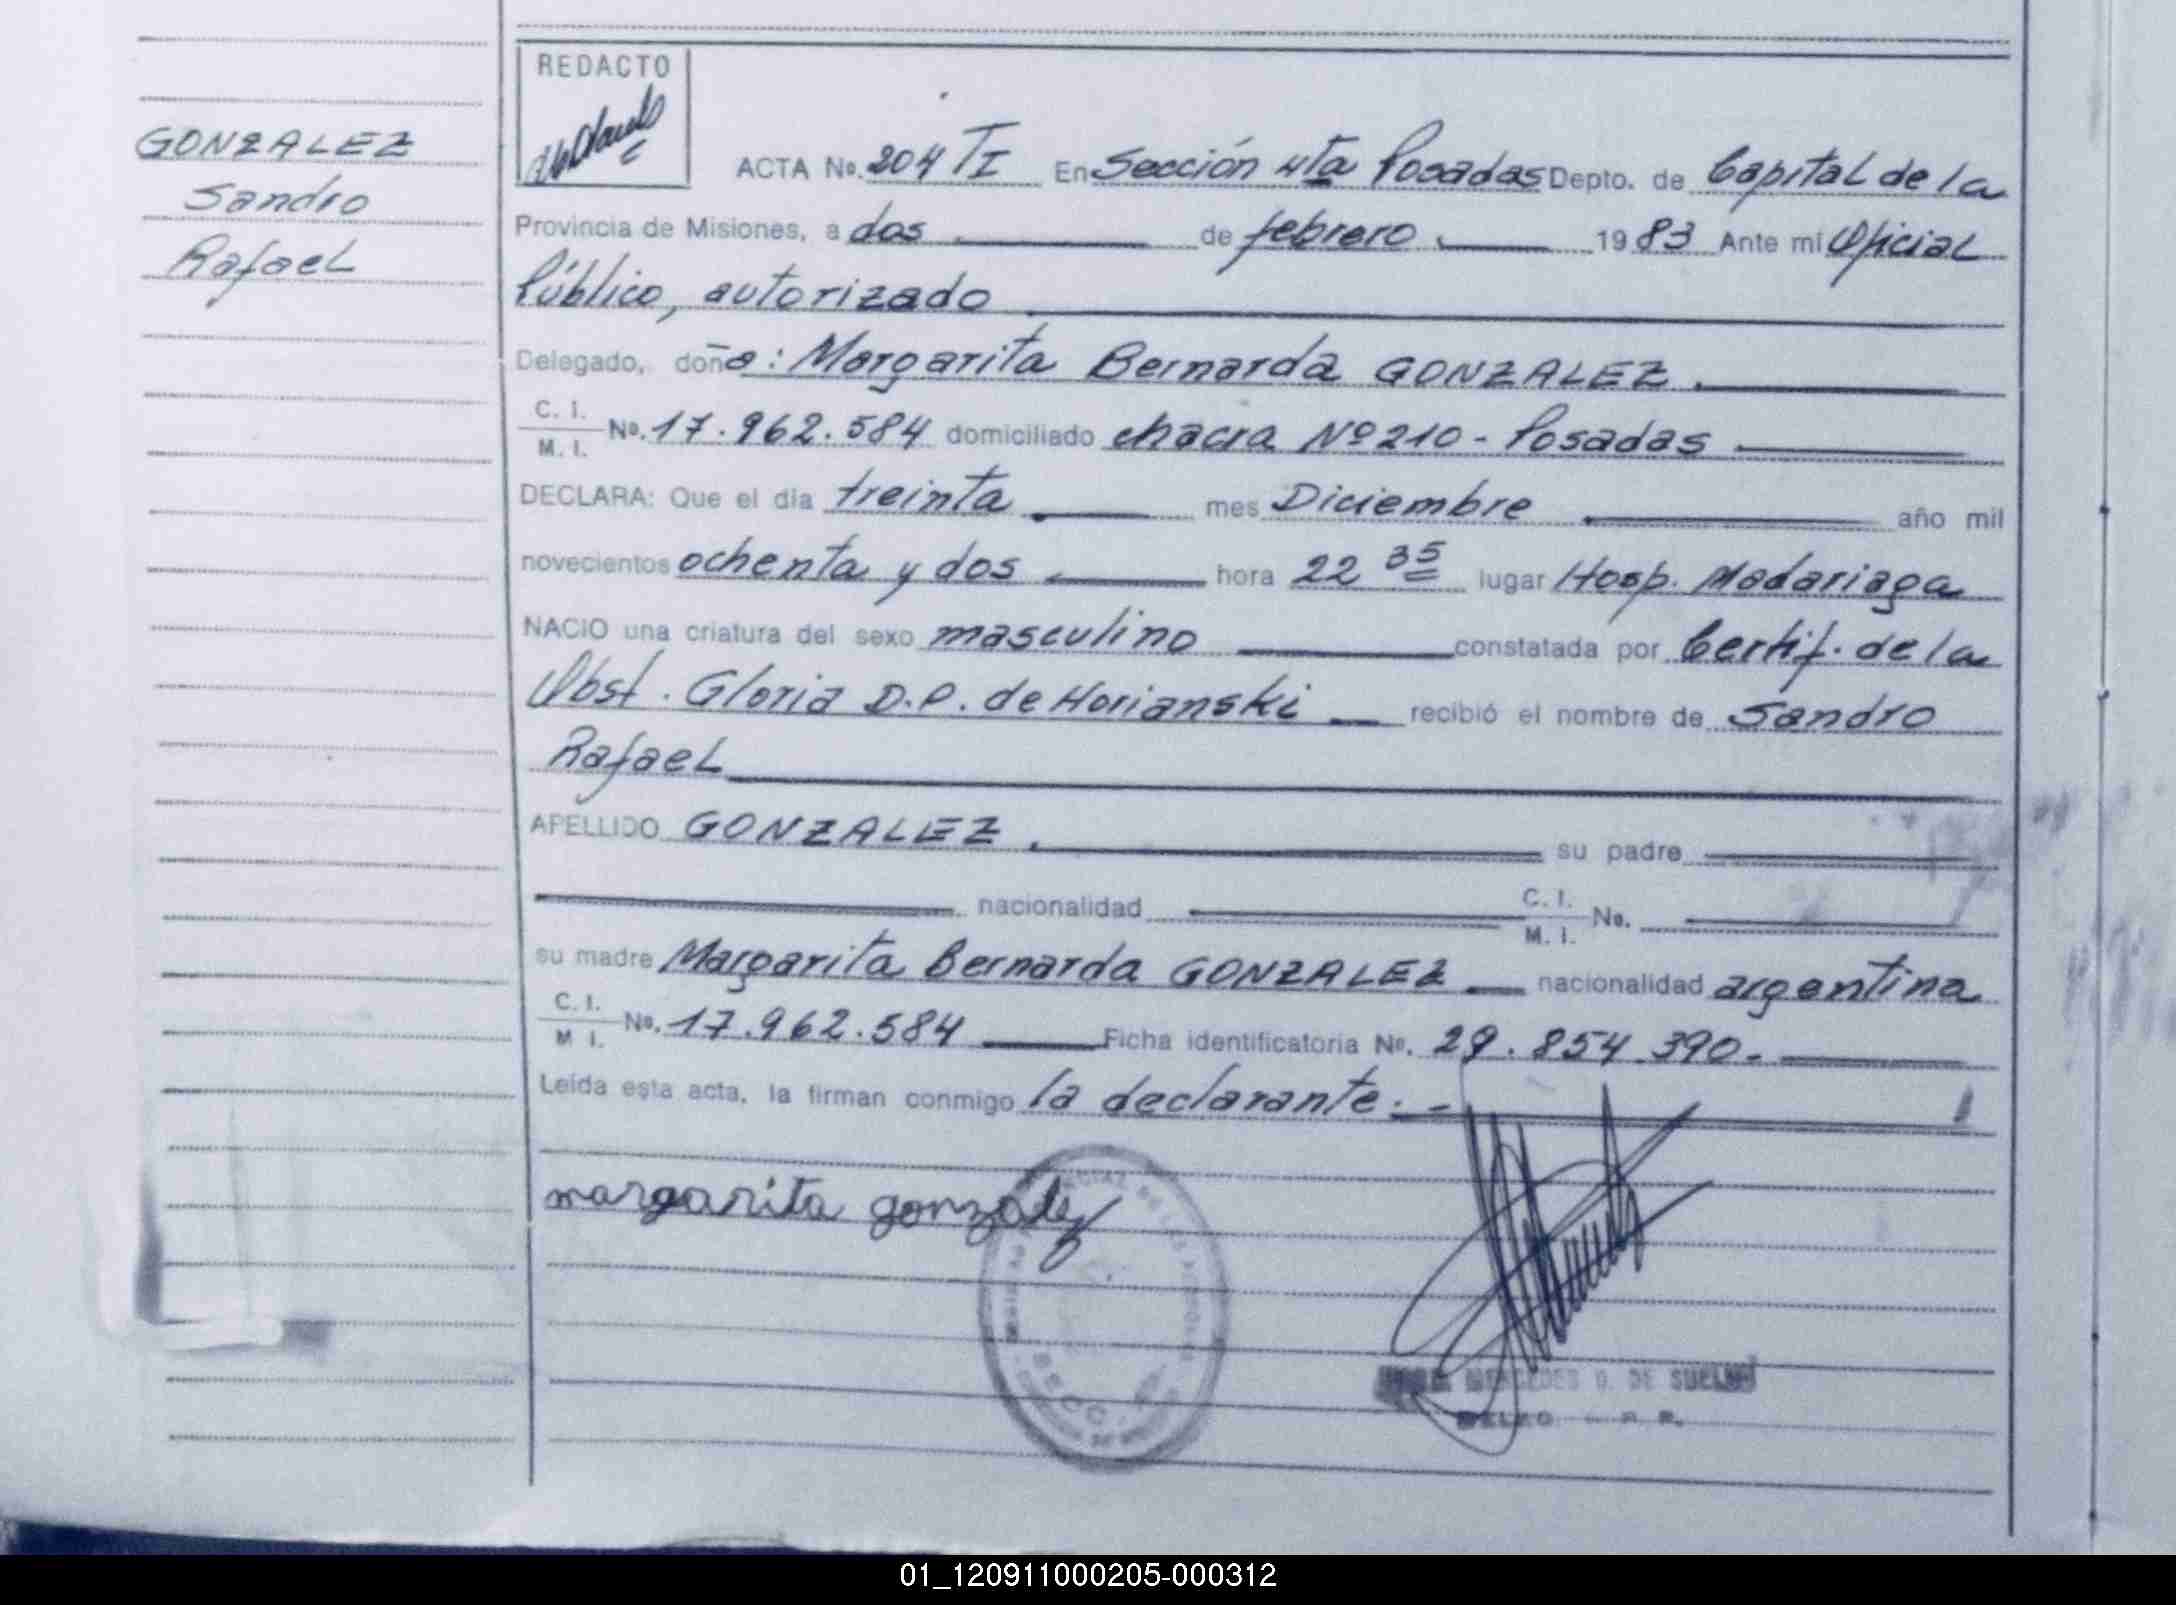 GONZALEZ
Sandro
Rafael
REDACTO
ACTA No. 204 TI En Sección 4ta Posadas Depto. de Capital de la
Provincia de Misiones, a dos de febrero 1983 Ante mí Oficial
Público, autorizado
Delegado, doña: Margarita Bernarda GONZALEZ.
C. I.
M. I. No. 17.962.584 domiciliado chacra Nº 210 - Posadas
DECLARA: Que el día treinta mes Diciembre año mil
novecientos ochenta y dos hora 22 35 lugar Hosp. Madariaga
NACIO una criatura del sexo masculino constatada por Certif. de la
Obst. Gloria D.P. de Horianski recibió el nombre de Sandro
Rafael
APELLIDO GONZALEZ. su padre
nacionalidad C. I.
M. I. No.
su madre Margarita Bernarda GONZALEZ nacionalidad argentina
C. I.
M I. No. 17.962.584 Ficha identificatoria No. 29.854.390.-
Leída esta acta, la firman conmigo la declarante.-
margarita gonzalez
SECC.
MERCEDES DE
01_120911000205-000312